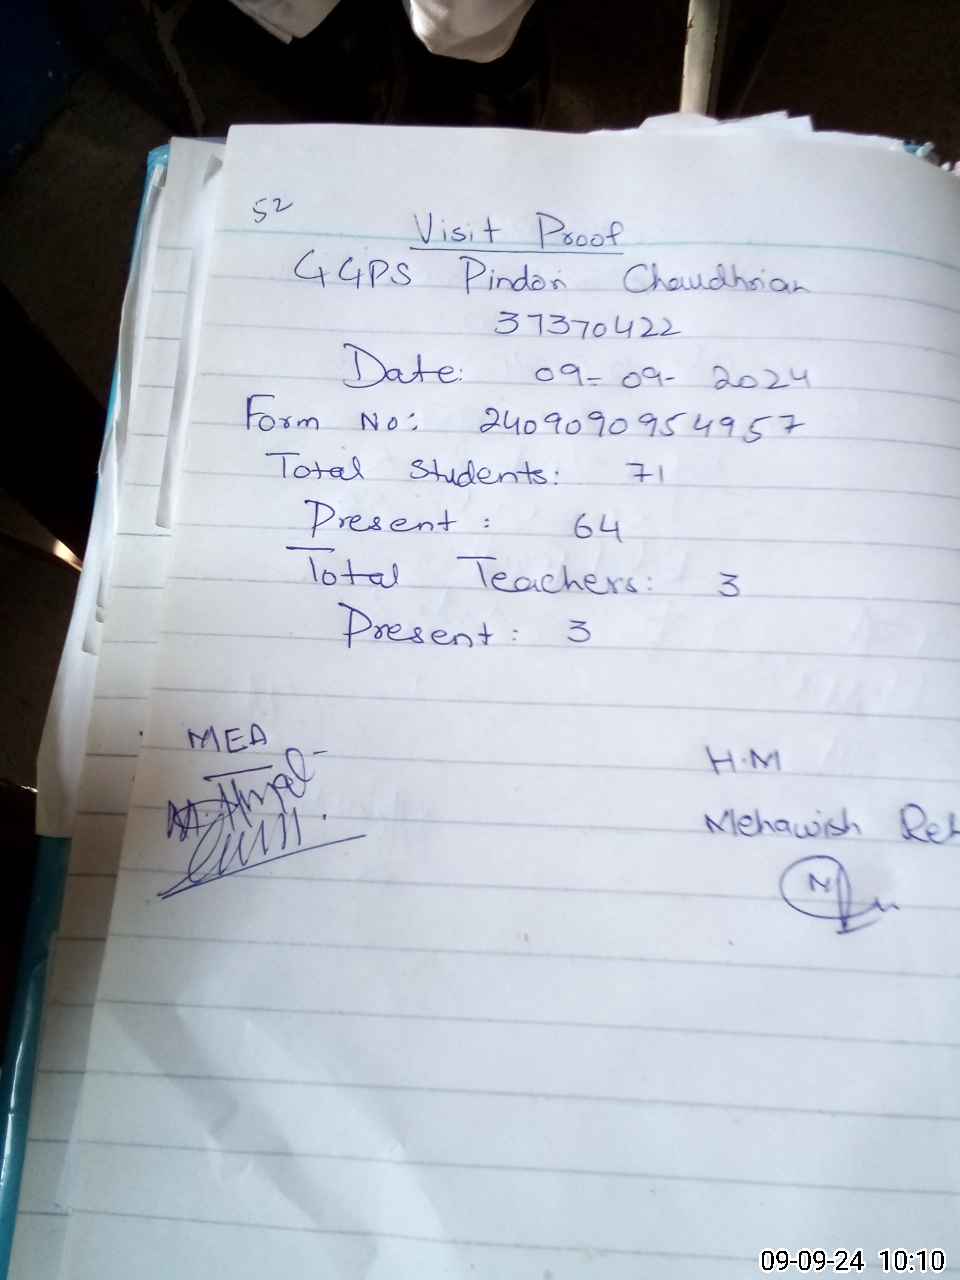 52
Visit Proof
GGPS Pindori Chaudhrian
37370422
Date: 09-09-2024
Form No: 2409090954957
Total Students: 71
Present: 64
Total Teachers: 3
Present: 3
MEA
H.M
Mehawish
09-09-24 10:10